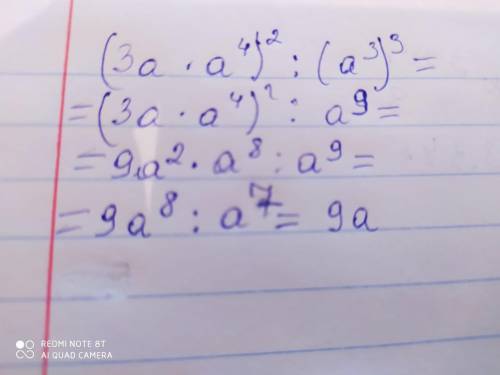 (3a · a⁴)² : (a³)³ =
= (3a · a⁴)² : a⁹ =
= 9a² · a⁸ : a⁹ =
= 9a⁸ : a⁷ = 9a
REDMI NOTE 8T
AI QUAD CAMERA